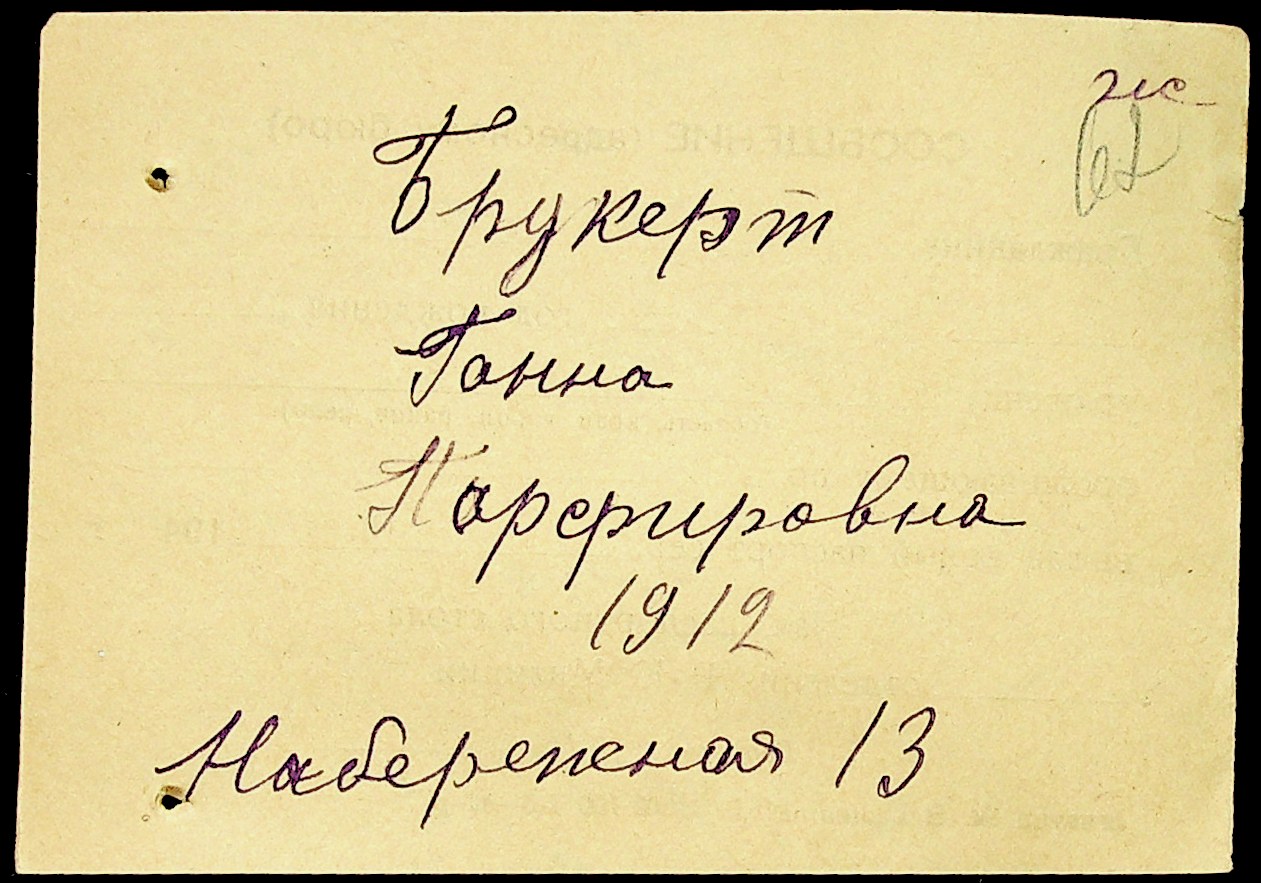 жс
62
Брукерт
Ганна
Парфировна
1912
Набережная 13